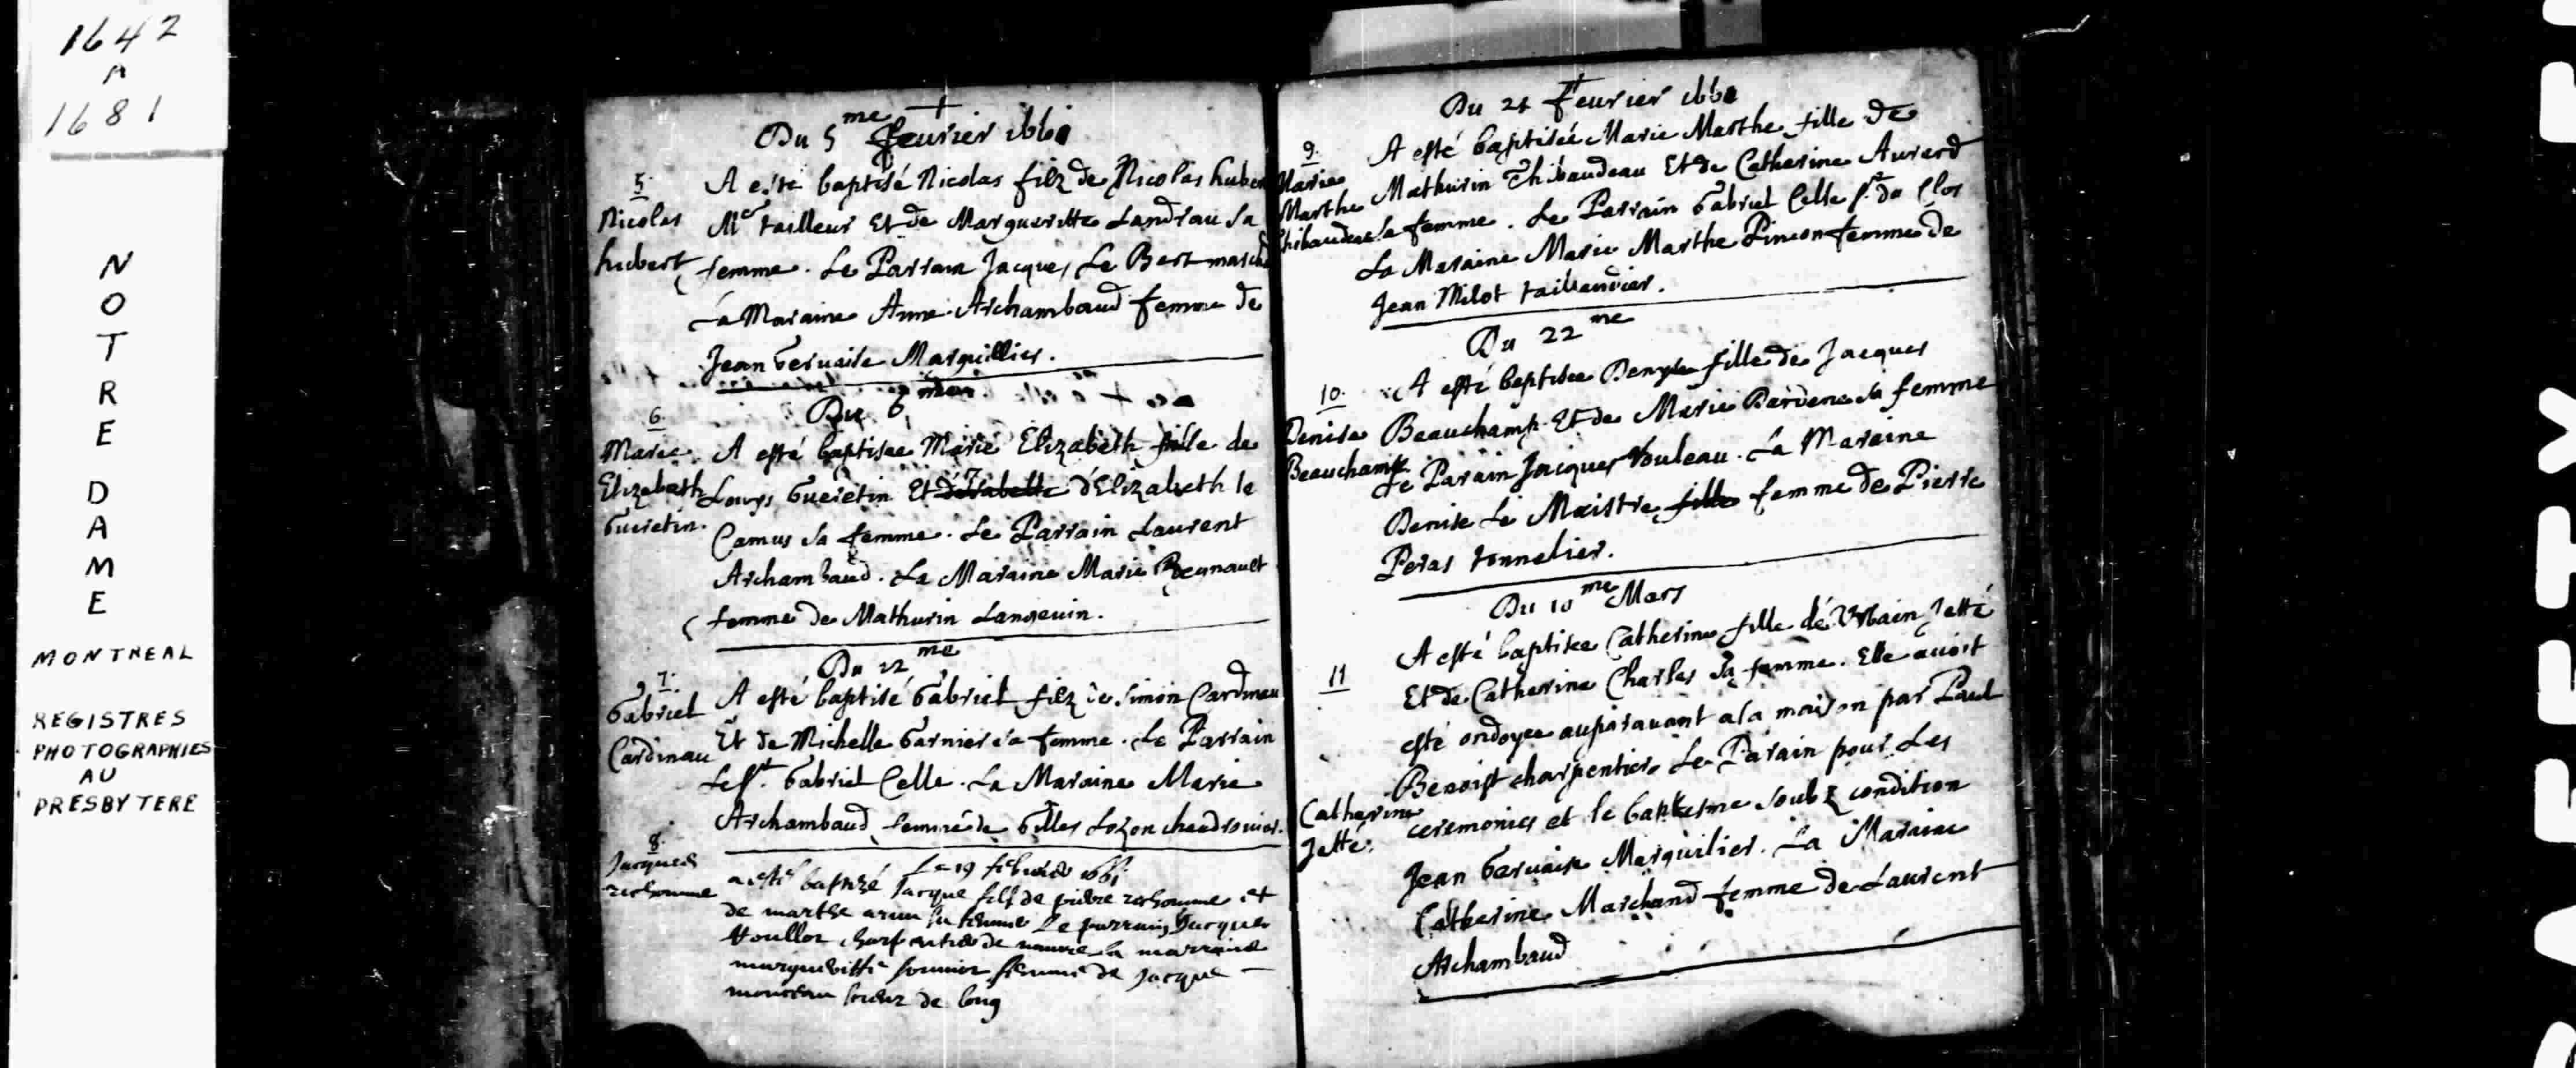 1642
A
1681
N
O
T
R
E
D
A
M
E
MONTREAL
REGISTRES
PHOTOGRAPHIES
AU
PRESBYTERE
Du 5me feurier 1661
5.
Nicolas
hubert
A esté baptisé Nicolas filz de Nicolas huber
Mer tailleur Et de Margueritte Landreau sa
femme. Le Parrain Jacques Le Bert marcha
La Maraine Anne Archambaud femme de
Jean Geruaise Marguillier.
Du 6
6.
Marie
Elizabeth
Gueretin.
A esté baptisee Marie Elizabeth fille de
Louys Gueretin Et d'Elizabeth le
Camus sa femme. Le Parrain Laurent
Archambaud. La Maraine Marie Regnault
femme de Mathurin Langeuin.
Du 12me
7.
Gabriel
Cardinau
A esté baptisé Gabriel filz de Simon Cardinau
Et de Michelle Garnier sa femme. Le Parrain
Le Sr. Gabriel Celle. La Maraine Marie
Archambaud femme de Gilles Lozon chaudronier.
8.
Jacques
richomme
Le 19 februier 1661
a esté baptizé Jacque fils de pierre richomme et
de marthe arnu sa femme Le parrain Jacques
charpentier de nauire la marraine
margueritte femme de Jacque
sieur de long
Du 21 feurier 1661
9.
Marie
Marthe
Thibaudeau
A esté baptisée Marie Marthe fille de
Mathurin Thibaudeau Et de Catherine Aurard
sa femme. Le Parrain Gabriel Celle Sr. du Clos
La Maraine Marie Marthe Pinson femme de
Jean Milot taillandier.
Du 22me
10.
Denise
Beauchamp
A esté baptisee Denyse fille de Jacques
Beauchamp Et de Marie Dardene sa femme
Le Parain Jacques Vouleau. La Maraine
Denise Le Maistre fille femme de Pierre
Peras tonnelier.
Du 10me Mars
11
Catherine
Jetté.
A esté baptisee Catherine fille de Vrbain Jetté
Et de Catherine Charles sa femme. Elle auoit
esté ondoyee auparauant a la maison par Paul
Benoist charpentier Le Parain pour Les
ceremonies et le baptesme soubz condition
Jean Geruaise Marguilier. La Maraine
Catherine Marchand femme de Laurent
Archambaud